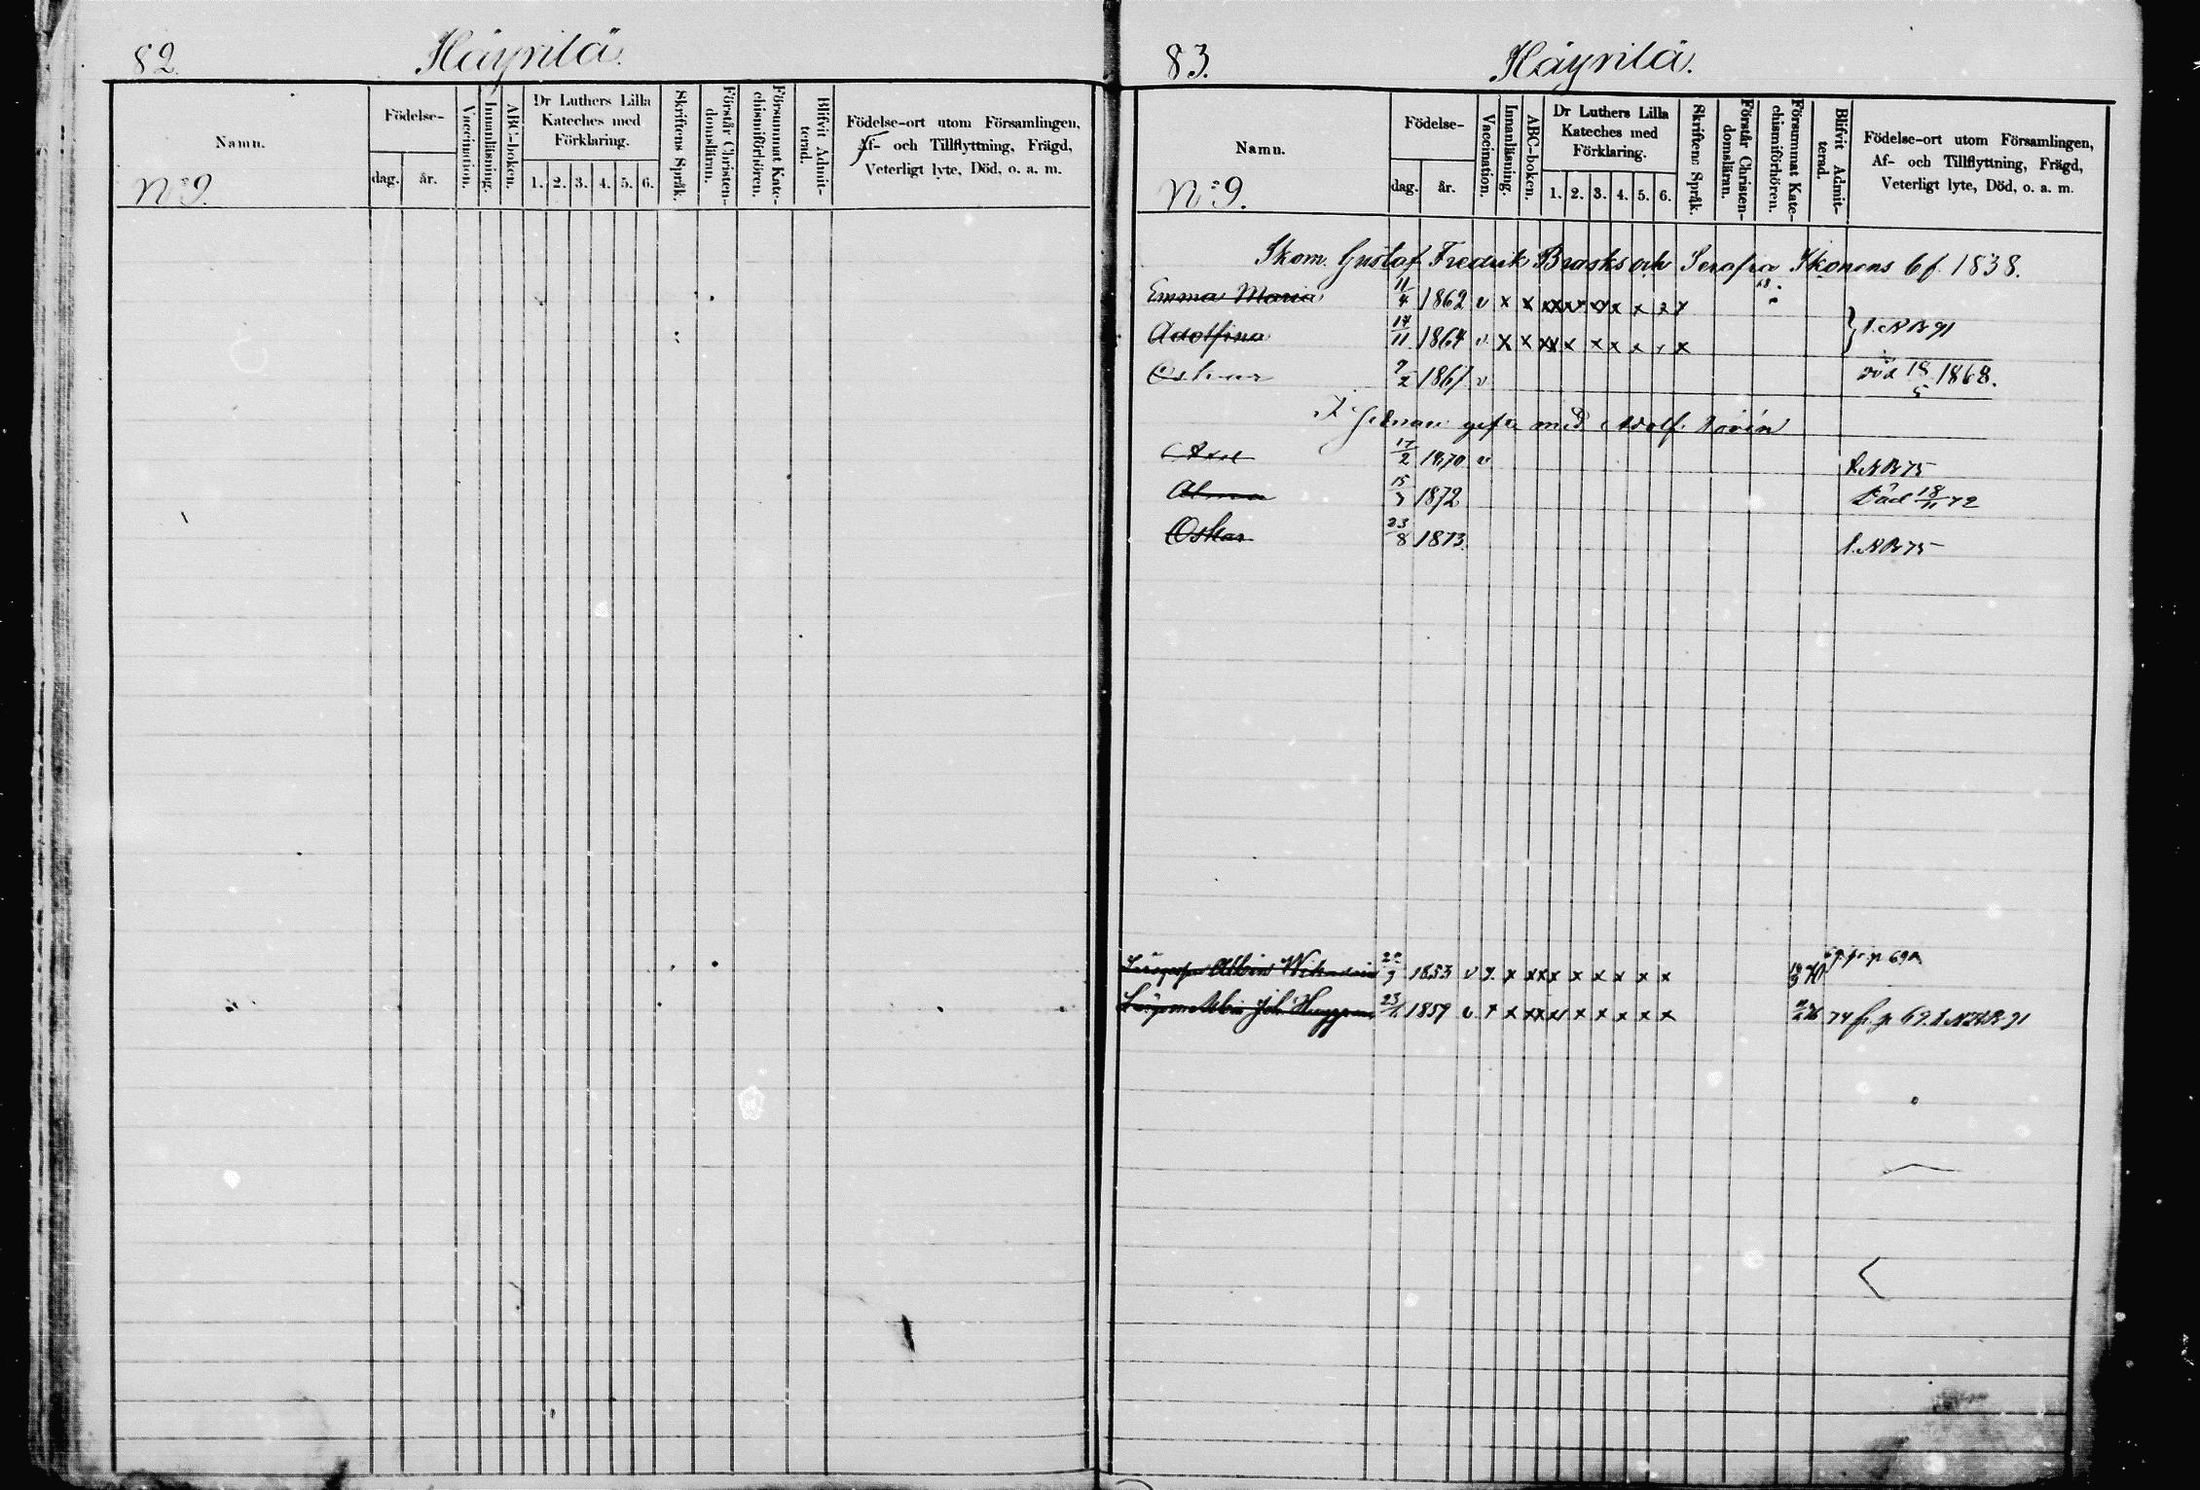 82.
Häyrilä.
Namn.
Födelse-
dag.
år.
Vaccination.
Innanläsning.
ABC-boken.
Dr Luthers Lilla
Kateches med
Förklaring.
1. 2. 3. 4. 5. 6.
Skriftens Språk.
Förstår Christen-
domsläran.
Försummat Kate-
chismiförhören.
Blifvit Admit-
terad.
Födelse-ort utom Församlingen,
Af- och Tillflyttning, Frägd,
Veterligt lyte, Död, o. a. m.
No 9.
83.
Häyrilä.
Namn.
Födelse-
dag.
år.
Vaccination.
Innanläsning.
ABC-boken.
Dr Luthers Lilla
Kateches med
Förklaring.
1. 2. 3. 4. 5. 6.
Skriftens Språk.
Förstår Christen-
domsläran.
Försummat Kate-
chismiförhören.
Blifvit Admit-
terad.
Födelse-ort utom Församlingen,
Af- och Tillflyttning, Frägd,
Veterligt lyte, Död, o. a. m.
No 9.
Skom. Gustaf Fredrik Brasks och Serafia Ikonens 6 f. 1838.
Emma Maria 11/4 1862 v x x xx x x x x
Adolfina 17/11 1864 v x x xx x x x x x } l. NB 91
Oskar 9/2 1867 v död 18/5 1868.
gift med Adolf
Axel 17/2 1870 v l. NB 75
Alma 15/7 1872 Död 18/11 72
Oskar 23/8 1873. l. NB 75
Albin 22/9 1853 v x x xx x x x x x 70 fr p 69
Joh. 23/11 1859 v x x xx x x x x x 74 fr p 69. l. NB 91